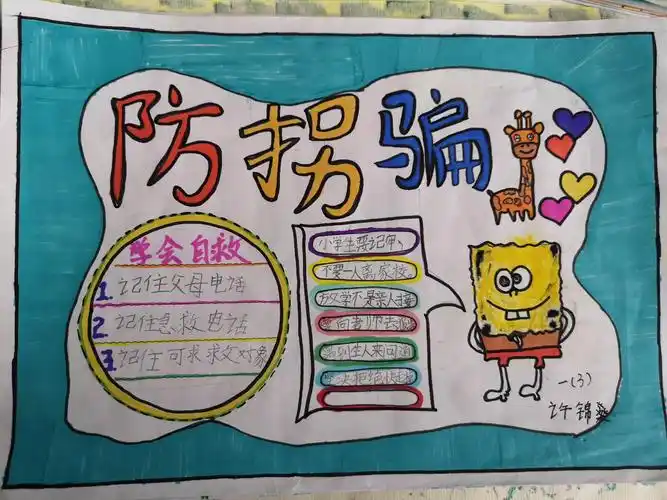 防拐骗
学会自救
1. 记住父母电话
2. 记住急救电话
3. 记住可求救对象
小学生要记牢,
不要一人离家校。
放学不是亲人接
要向老师去报
遇到生人来问道
坚决拒绝快走
一(3)
许锦